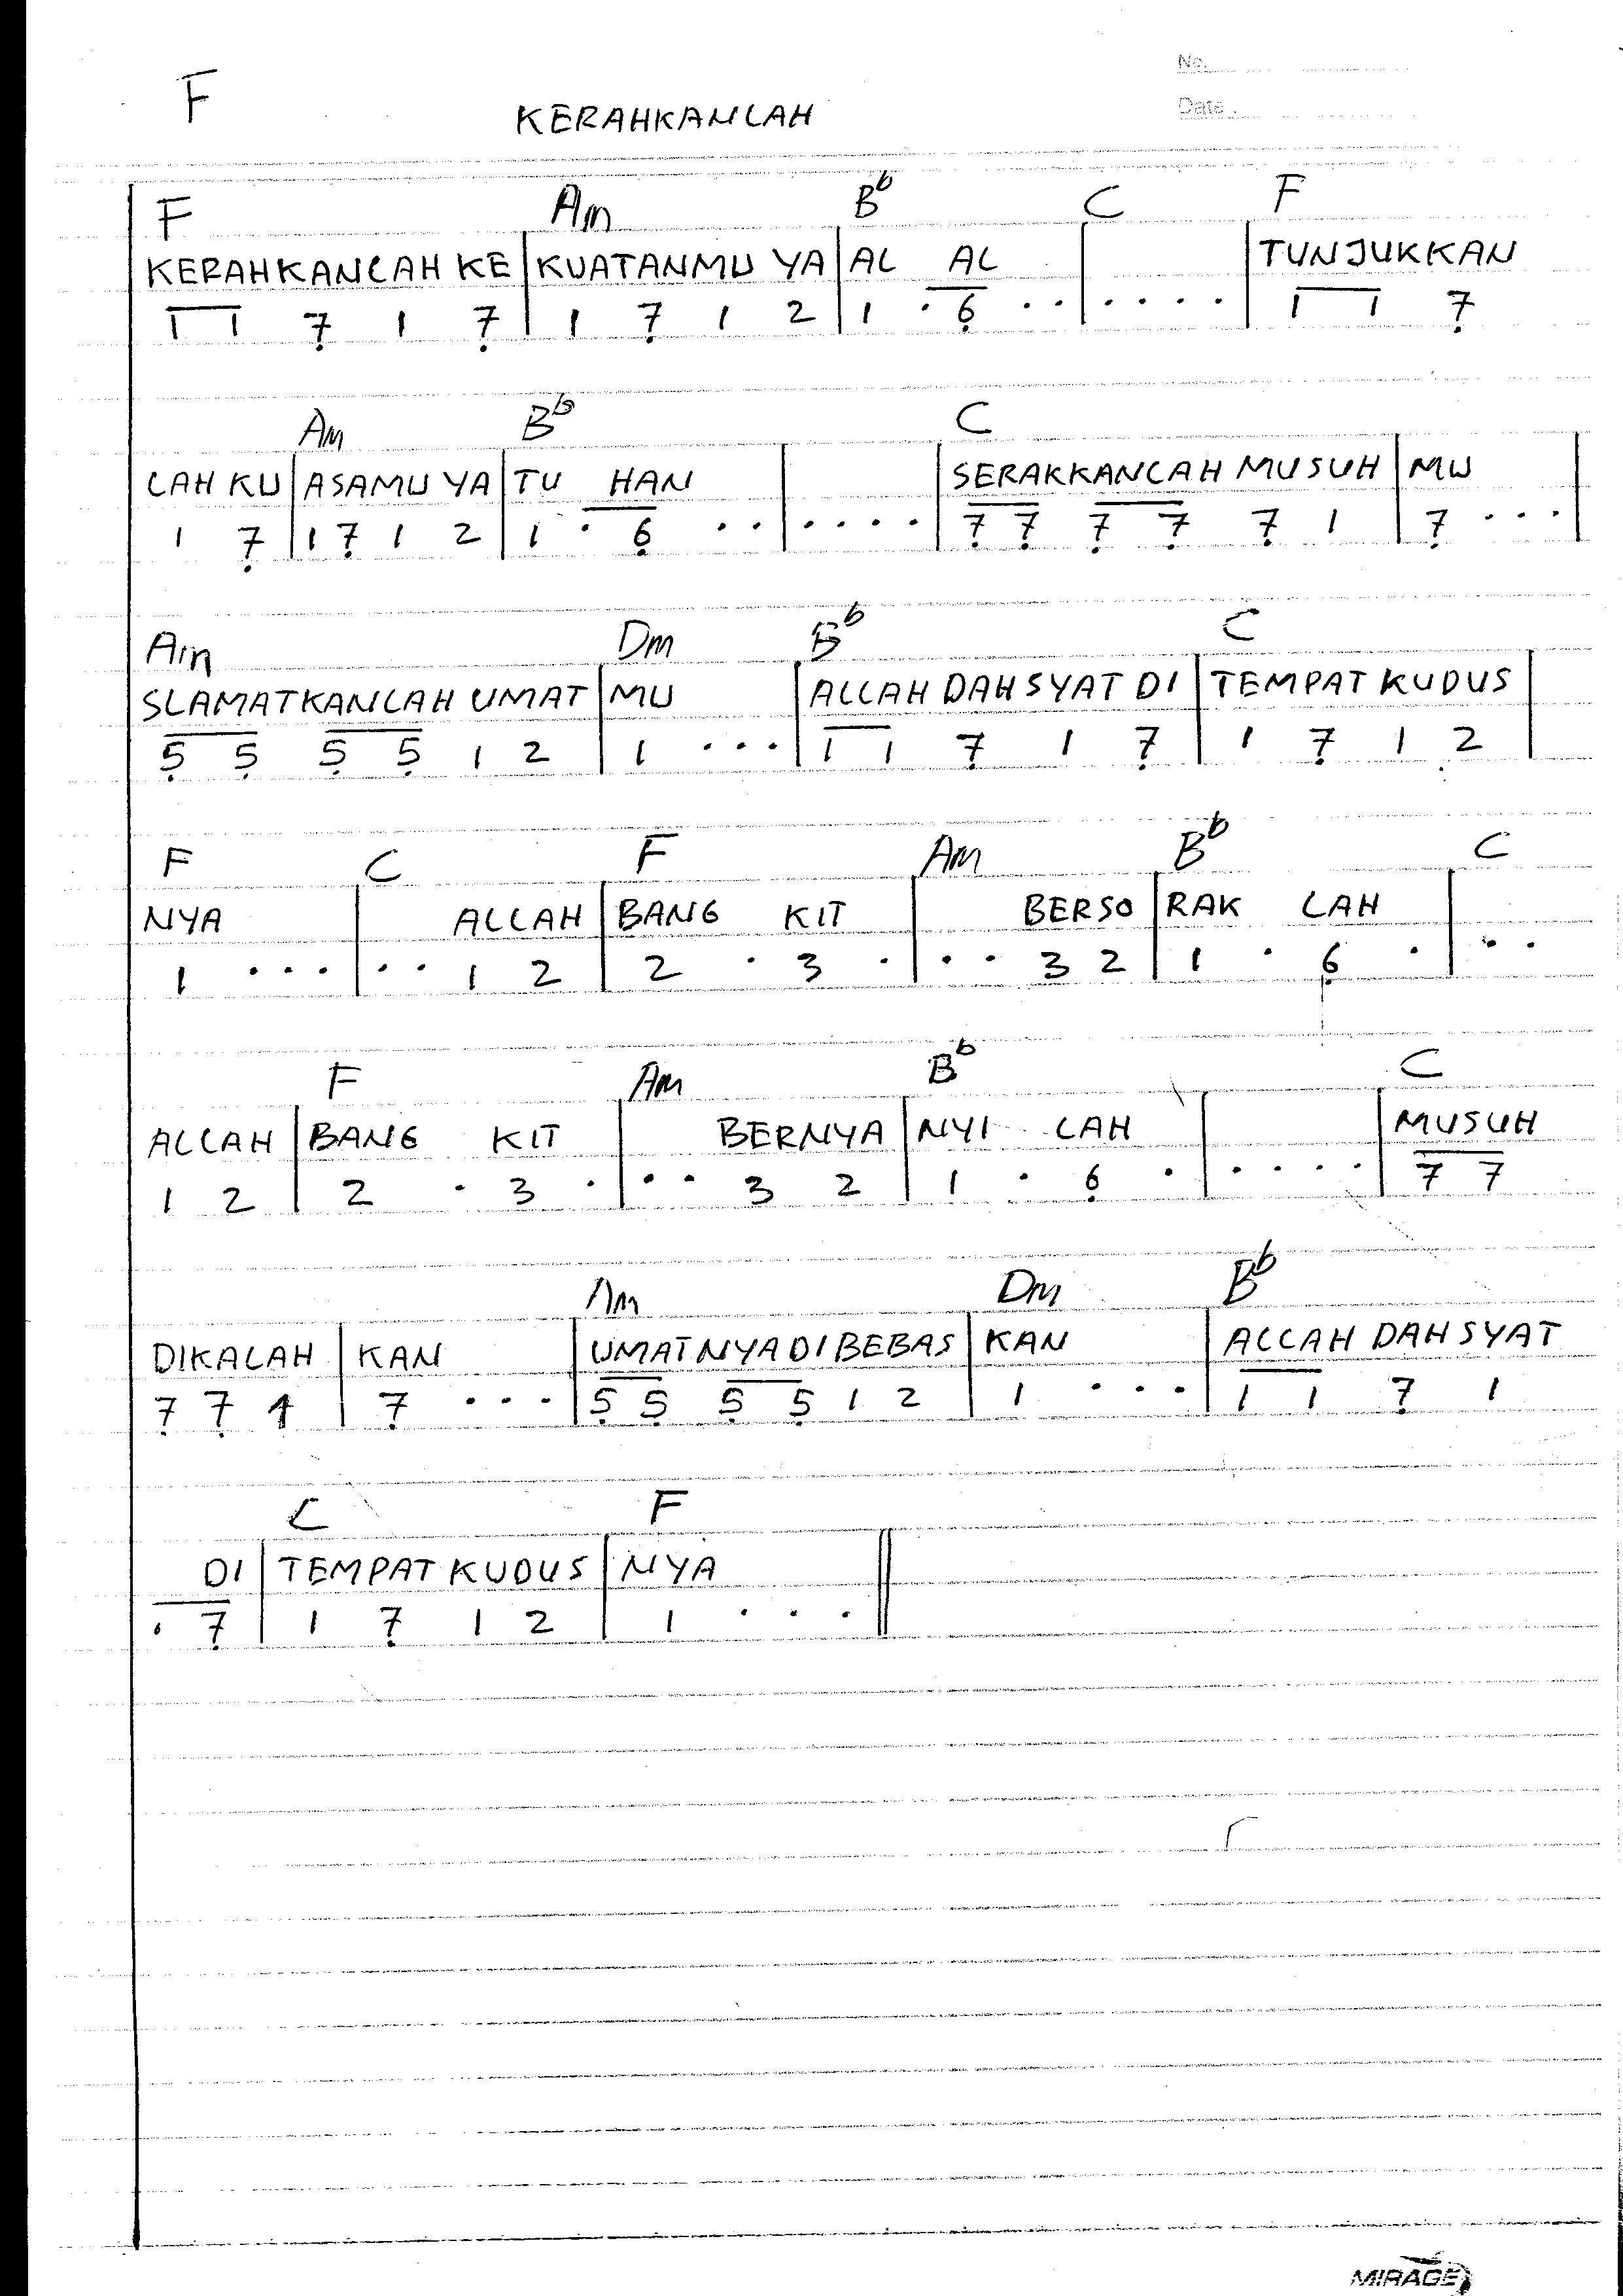 No.
F
KERAHKANLAH
Date
F Am Bb C F
KERAHKANLAH KE | KUATANMU YA | AL AL | | TUNJUKKAN
1 1 7 1 7 | 1 7 1 2 | 1 . 6 . . | . . . . | 1 1 7
Am Bb C
LAH KU | ASAMU YA | TU HAN | | SERAKKANLAH MUSUH | MU |
1 7 | 1 7 1 2 | 1 . 6 . . | . . . . | 7 7 7 7 7 1 | 7 . . . |
Am Dm Bb C
SLAMATKANLAH UMAT | MU | ALLAH DAHSYAT DI | TEMPAT KUDUS |
5 5 5 5 1 2 | 1 . . . | 1 1 7 1 7 | 1 7 1 2 |
F C F Am Bb C
NYA | ALLAH | BANG KIT | BERSO | RAK LAH |
1 . . . | . . 1 2 | 2 . 3 . | . . 3 2 | 1 . 6 . | . .
F Am Bb C
ALLAH | BANG KIT | BERNYA | NYI LAH | | MUSUH
1 2 | 2 . 3 . | . . 3 2 | 1 . 6 . | . . . . | 7 7
Am Dm Bb
DIKALAH | KAN | UMATNYA DIBEBAS | KAN | ALLAH DAHSYAT
7 7 1 | 7 . . . | 5 5 5 5 1 2 | 1 . . . | 1 1 7 1
C F
DI | TEMPAT KUDUS | NYA ||
. 7 | 1 7 1 2 | 1 . . . ||
MIRAGE